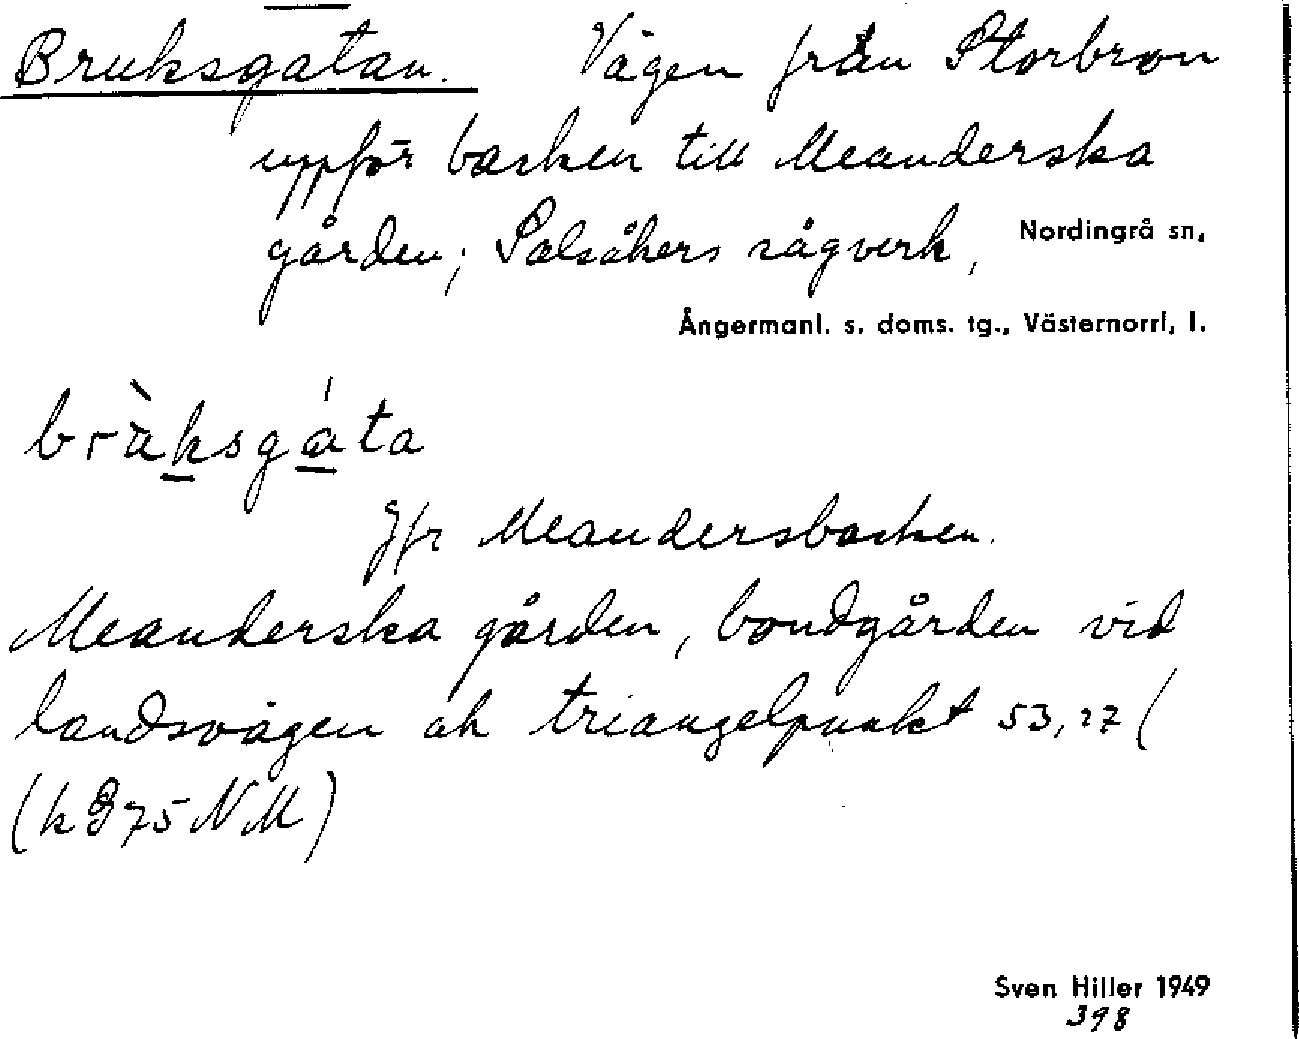 Bruksgatan. Vägen från Storbron
uppför backen till Meanderska
gården; Salsåkers sågverk, Nordingrå sn,
Ångermanl. s. doms. tg., Västernorrl. l.
brùksgáta
Jfr Meandersbacken.
Meanderska gården, bondgården vid
landsvägen ah triangelpunkt 53,27 (
(k J 75 NM)
Sven Hiller 1949
398